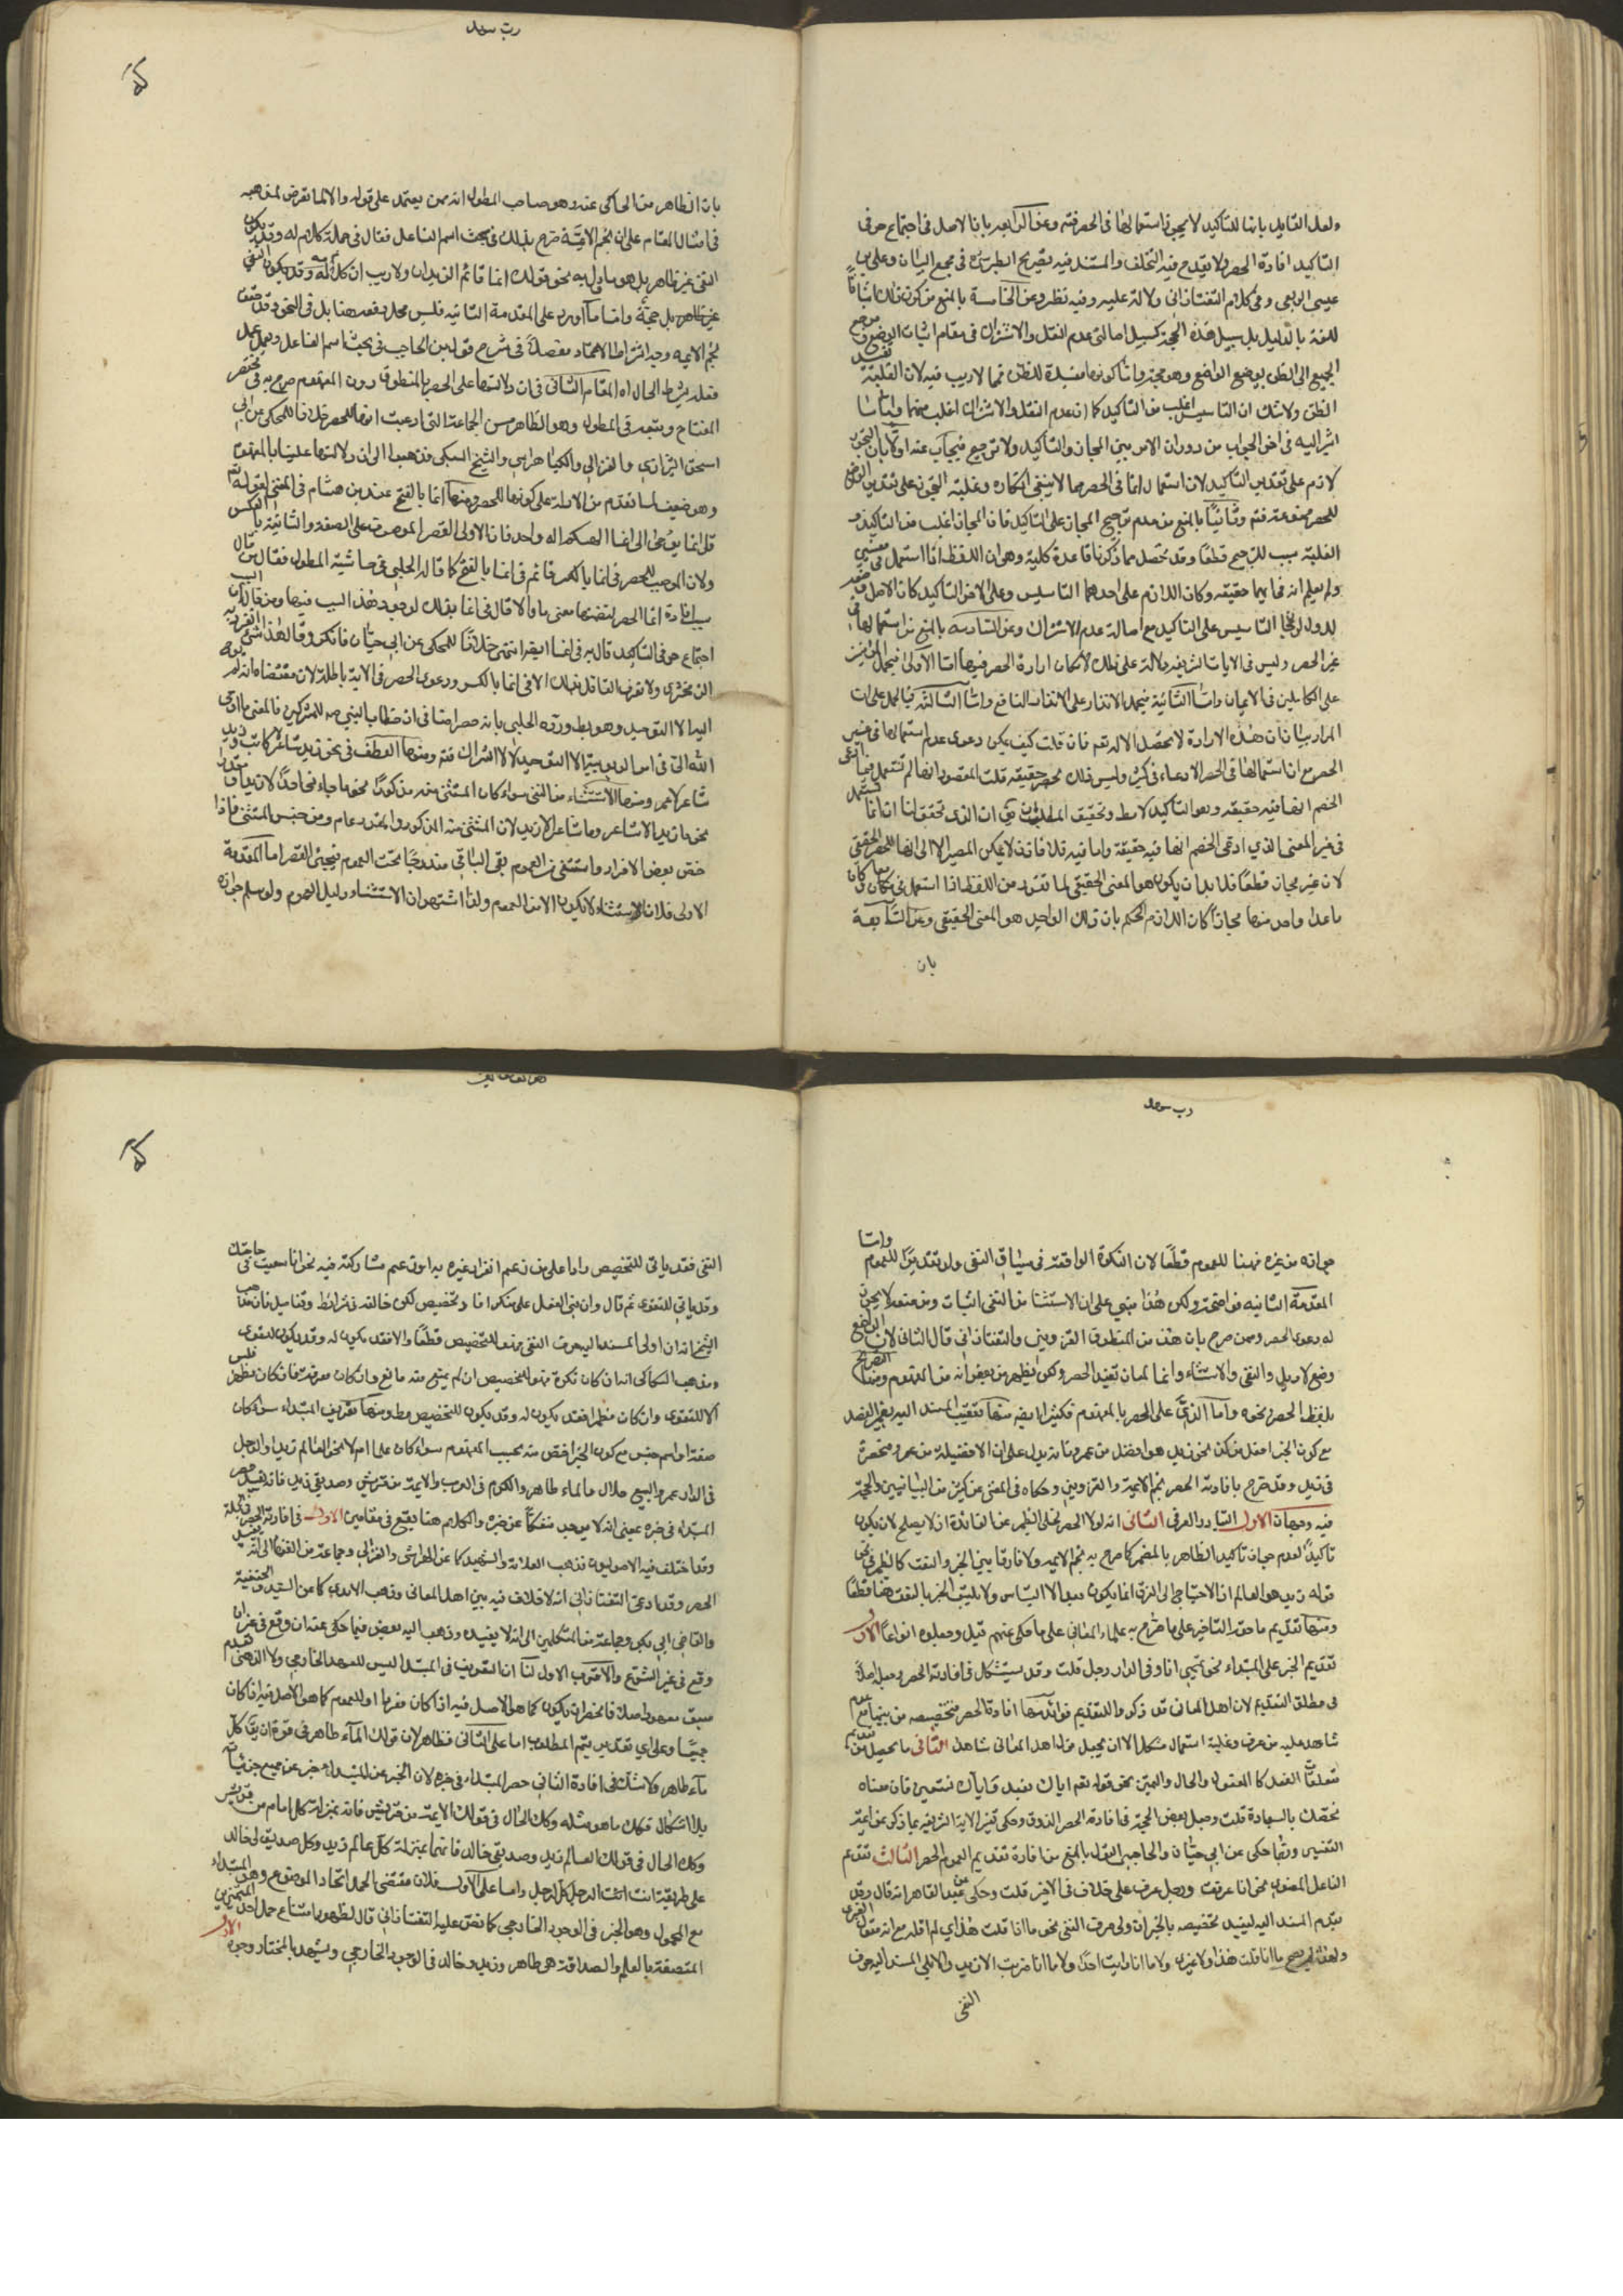 ولعل القايل بانها للتاكيد لا يجوز استعمالها في الحصر فتم وعن الرابعه بانا الاصل في اجتماع حرفي
التاكيد افادة الحصر ولا يقدح فيه التخلف والمستند فيه تصريح الطبرسي في مجمع البيان وعلي بن
عيسى الربعي وفي كلام التفتازاني دلالة عليه وفيه نظر وعن الخامسة بالمنع من كون ذلك اثباتا
للغة بالدليل بل سبيل هذه الحجة كسبيل اصالتي عدم النقل والاشتراك في مقام اثبات الوضع
الجميع الى الظن بوضع الواضع وهو حجة واما كونها مفيدة للظن فمما لا ريب فيه لان الغلبة تفيد
الظن ولا شك ان التاسيس اغلب من التاكيد كما ان عدم النقل والاشتراك اغلب منهما واما ما
اشير اليه في اخر الجواب من دوران الامر بين المجاز والتاكيد ولا ترجيح فيجاب عنه اولا بان التجوز
لازم على تقدير التاكيد لان استعمال انما في الحصر مما لا ينبغي انكاره وغلبة التجوز على تقدير الوضع
للحصر ممنوعة فتم وثانيا بالمنع من عدم ترجيح المجاز على التاكيد فان المجاز اغلب من التاكيد و
الغلبة سبب للترجيح قطعا وقد تحصل مما ذكرنا قاعدة كلية وهي ان اللفظ اذا استعمل في معنيين
ولم يعلم انه في ايهما حقيقه وكان اللازم على احدهما التاسيس وعلى الاخر التاكيد كان الاصل
غير الحصر وليس في الايات الشريفه دلالة على ذلك لامكان ارادة الحصر فيها اما الاولى فيحمل المؤمنين
على الكاملين في الايمان واما الثانية فيحمل الانذار على الانذار النافع واما الثالثة فبالحمل على ان
المراد بيان ان هذه الارادة لا تحصل الا له تعم فان قلت كيف يمكن دعوى عدم استعمالها في غير
الحصر مع ان استعمالها في الحصر الادعائي كثير وليس ذلك بحصر حقيقه قلت المقصود انها لم تستعمل فيما ادعى
الخصم انها فيه حقيقه وهو التاكيد لا مط وتحقيق المطلب ان الذي تحقق لنا ان انما تستعمل
في غير المعنى الذي ادعى الخصم انها فيه حقيقة واما فيه فلا فاذن لا يمكن المصير الا الى انها للحصر الحقيقي
لان غيره مجاز قطعا فلا بد ان يكون هو المعنى الحقيقي لما تقرر من ان اللفظ اذا استعمل في معان وكان
ما عدا واحد منها مجازا كان اللازم الحكم بان ذلك الواحد هو المعنى الحقيقي وعن السابعة
بان
بان الظاهر من الحاكي عنه وهو صاحب المطول انه ممن يعتمد على قوله والا لما تعرض لمذهبه
في امثال المقام على ان نجم الائمة صرح بذلك في بحث اسم الفاعل فقال في جملة كلام له وقد يكون
النفي غير ظاهر بل هو ماول به نحو قولك انما قائم الزيدان ولا ريب ان كلامه
غير ظاهر بل حجة واما ما اورد على المقدمة الثانيه فليس محل دفعه هنا بل في النحو وقد حقق
نجم الايمه وجه اشتراط الاعتماد مفصلا في شرح قول ابن الحاجب في بحث اسم الفاعل ويعمل عمل
فعله بشرط الحال اه المقام الثاني في ان دلالتها على الحصر بالمنطوق دون المفهوم صرح به في مختصر
المفتاح وتبعه في المطول وهو الظاهر من الجماعة التي ادعت انها للحصر خلافا للمحكي عن ابي
اسحق الشيرازي والغزالي والكيا هراسي والشيخ السبكي فذهبوا الى ان دلالتها عليه بالمفهوم
وهو ضعيف لما تقدم من الادلة على كونها للحصر ومنها انما بالفتح عند بن هشام في المغني لقوله تم
قل انما يوحى الى انما الهكم اله واحد فان الاولى لقصر الموصوف على الصفة والثانية بالعكس
ولان الموجب للحصر في انما بالكسر قائم في انما بالفتح كما قاله الحلبي في حاشية المطول فقال من قال
سبب افادة انما الحصر لتضمنها معنى ما والا قال في انما بذلك لوجود هذا السبب فيها ومن قال ان السبب
اجتماع حرفي التاكيد قال به في انما ايضا انتهى خلافا للمحكي عن ابي حيان فانكره وقال هذا شيء تفرد به
الزمخشري ولا تعرف القائل بذلك الا في انما بالكسر ودعوى الحصر في الاية باطلة لان مقتضاه انه لم يوح
اليه الا التوحيد وهو بط ورده الحلبي بانه حصر اضافي لان خطاب النبي ص للمشركين فالمعنى ما اوحى
الله الي في امر الربوبية الا التوحيد لا الاشراك فتم ومنها العطف في نحو زيد شاعر لا كاتب وزيد
شاعر لا عمرو ومنها الاستثناء من النفي سواء كان المستثنى منه مذكورا نحو ما جاءنا احد الا زيد او مقدرا
نحو ما زيد الا شاعر وما شاعر الا زيد لان المستثنى منه المذكور والمقدر عام ومن جنس المستثنى فاذا
خص بعض الافراد واستثنى من العموم بقي الباقي مندرجا تحت العموم فيجئ القصر اما المقدمة
الاولى فلان الاستثناء لا يكون الا من العموم ولذا اشتهر ان الاستثناء دليل العموم ولو سلم جوازه
من انه من غيره فهنا للعموم قطعا لان النكرة الواقعة في سياق النفي ولو تقديرا للعموم واما
المقدمة الثانيه فواضحة ولكن هذا مبني على ان الاستثنا من النفي اثبات ومن منعه لا يجوز
له دعوى الحصر وممن صرح بان هذه من المنطوق القزويني والتفتازاني قال الثاني لان الواضع
وضع لا وبل والنفي والاستثناء وانما لمعان تفيد الحصر ولكن يظهر من بعض انه من المفهوم ومنها التصريح
بلفظ الحصر ونحوه واما الدال على الحصر بالمفهوم فكثير ايضا منها تعقيب المسند اليه بضمير الفصل
مع كون الخبر افعل من كذا نحو زيد هو افضل من عمرو فانه يدل على ان الافضلية من عمرو منحصرة
في زيد وقد صرح بافادته الحصر نجم الائمة والقزويني وحكاه في المغني عن كثير من البيانيين والحجة
فيه وجهان الاول التبادر العرفي الثاني انه لولا الحصر لخلى الظهير عن الفائدة اذ لا يصلح لان يكون
تاكيدا لعدم جواز تاكيد الظاهر بالمضمر كما صرح به نجم الائمه ولا فارقا بين الخبر والنعت كما يظهر في نحو
قوله زيد هو العالم اذ الاحتياج الى الفرق انما يكون بعد الالتباس ولا يلتبس الخبر بالنعت هنا قطعا
ومنها تقديم ما حقه التاخير على ما صرح به علماء المعاني على ما حكى عنهم قيل وجعلوه انواعا الاول
تقديم الخبر على المبتداء نحو تميمي انا وفي الدار رجل قلت وقد يستشكل في افادته الحصر وجعله اصلا
في مطلق التقديم لان اهل المعاني قد ذكروا للتقديم فوائد منها افادة الحصر فتخصيصه من بينها مع عدم
شاهد عليه من عرف وغلبة استعمال مشكل الا ان يجعل قول اهل المعاني شاهدا الثاني ما يحصل من تقديم
متعلقات الفعل كالمفعول والحال والتميز نحو قوله تعم اياك نعبد واياك نستعين فان معناه
نخصك بالعبادة قلت وجعل بعض الحجة في افادته الحصر الذوق وحكى تفسير الاية الشريفه بما ذكر عن ائمة
التفسير وربما حكى عن ابي حيان والحاجبي القول بالمنع من افادة تقديم المعمول الحصر الثالث تقديم
الفاعل المعنوي نحو انا عرفت ورجل عرف على خلاف في الاخير قلت وحكى عن عبد القاهر انه قال وقد
يقدم المسند اليه ليفيد تخصيصه بالخبر الفعلي ان ولي حرف النفي نحو ما انا قلت هذا اي لم اقله مع انه مقول
ولهذا لم يصح ما انا قلت هذا ولا غيري ولا ما انا رايت احدا ولا ما انا ضربت الا زيدا والا يلي المسند اليه حرف
النفي
النفي فقد ياتي للتخصيص ردا على من زعم انفراد غيره به او زعم مشاركته فيه نحو انا سعيت في حاجتك
وقد ياتي للتقوى ثم قال وان بني الفعل على منكر افاد تخصيص لكن خالفه في شرائط وتفاصيل فان مذهب
الشيخ انه ان اولى المسند اليه حرف النفي فهو للتخصيص قطعا والا فقد يكون له وقد يكون للتقوى
ومذهب السكاكي انه ان كان نكرة فهو للتخصيص ان لم يمنع منه مانع وان كان معرفة فان كان مظهرا فليس
الا للتقوى وان كان مضمرا فقد يكون له وقد يكون للتخصيص مط ومنها تعريف المبتداء سواء كان
صفة او اسم جنس مع كون الخبر اخص منه بحسب المفهوم سواء كان علما ام لا نحو العالم زيد او الرجل
في الدار عمرو البيع حلال والماء طاهر والكرم في العرب والائمة من قريش وصديقي زيد فانه يفيد حصر
المبتداء في خبره بمعنى انه لا يوجد منفكا عن خبره والكلام هنا يقع في مقامين الاول في افادته الحصر في الجملة
وقد اختلف فيه الاصوليون فذهب العلامة والشهيد كما عن الهراسي والغزالي وجماعة من الفقهاء الى انه يفيد
الحصر وقد ادعى التفتازاني انه لا خلاف فيه بين اهل المعاني وذهب الامدي كما عن السيد والحنفية
والقاضي ابي بكر وجماعة من المتكلمين الى انه لا يفيده وذهب اليه بعض فيما حكى عنه ان وقع في غير
وقع في غير الشرع والاقرب الاول لنا ان التعريف في المبتدا ليس للعهد الخارجي ولا الذهني لعدم
سبق معهود اصلا فانحصر ان يكون كما هو الاصل فيه اذا كان مفردا او للعموم كما هو الاصل فيه اذا كان
جمعا وعلى اي تقدير يتم المطلوب اما على الثاني فظاهر لان قولك الماء طاهر في قوة ان يقال كل
ماء طاهر فلا شك في افادة الثاني حصر المبتداء في خبره لان الخبر عن المبتداء خبر عن جميع جزئياته
بلا اشكال فكك ما هو مثله وكك الحال في قولك الائمة من قريش فانه بمنزلة كل امام من قريش
وكك الحال في قولك العالم زيد وصديقي خالد فانهما بمنزلة كل عالم زيد وكل صديق لي خالد
على طريقة انت الرجل كل الرجل واما على الاول فلان مقتضى الحمل اتحاد الموضوع وهو المبتداء
مع المحمول وهو الخبر في الوجود الخارجي كما نص عليه التفتازاني قال لظهور امتناع حمل احد المتميزين
المتصفة بالعلم والصداقة هي ظاهر وزيد وخالد في الوجود الخارجي ويشهد بالمختار وجوه الاول